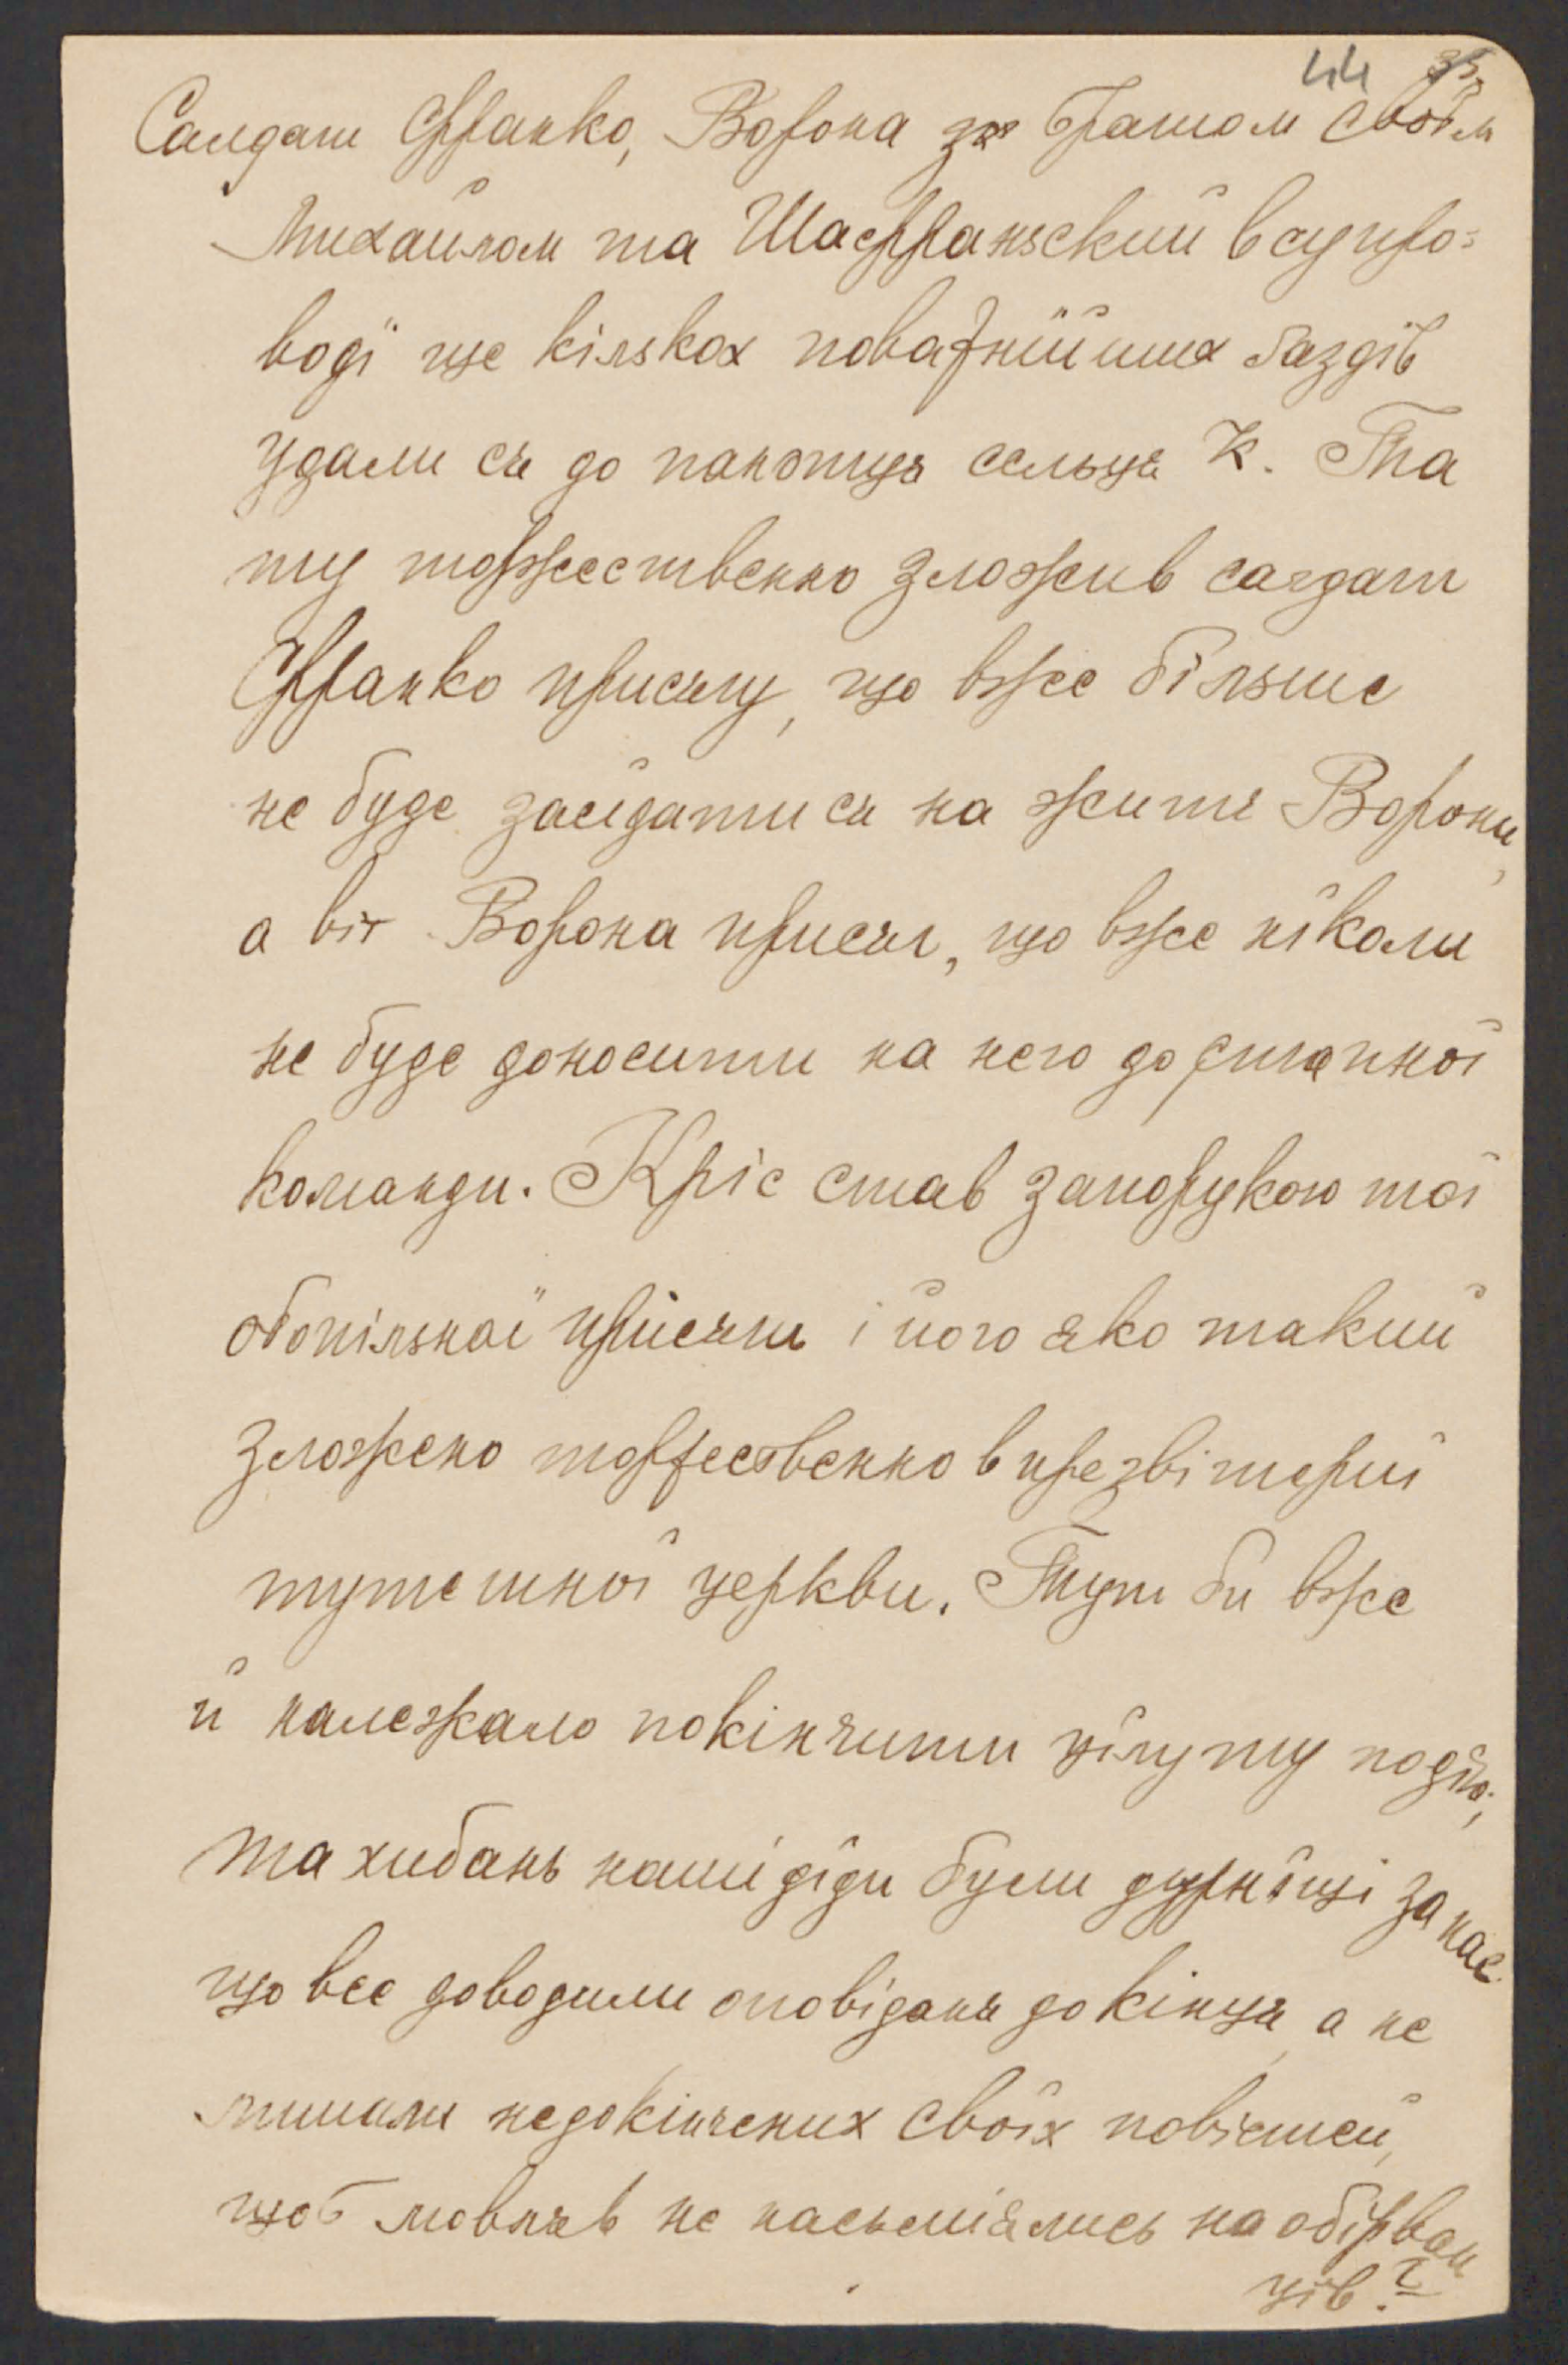 44 35
Салдат Франко, Ворона зе братом своїм
Михайлом та Шафраньский в супро-
водї ще кількох поважнїйших ґаздів
удали ся до панотця сельця К. Там
ту торжественно зложив салдат
Франко присягу, що вже більше
не буде засїдати ся на житє Ворони,
а віт Ворона присяг, що вже нїколи
не буде доносити на него до
команди. Кріс став запорукою тої
обопільної присяги і його яко такий
зложено торжественно в презвітериї
тутешної церкви. Тут би вже
й належало покінчити цїлу ту подїю,
та хибань наші дїди були дурнїщі за нас
що все доводили оповіданя до кінця, а не
лишали недокінчених своїх повістей,
щоб мовляв не насьміялись на обірван
цїв?